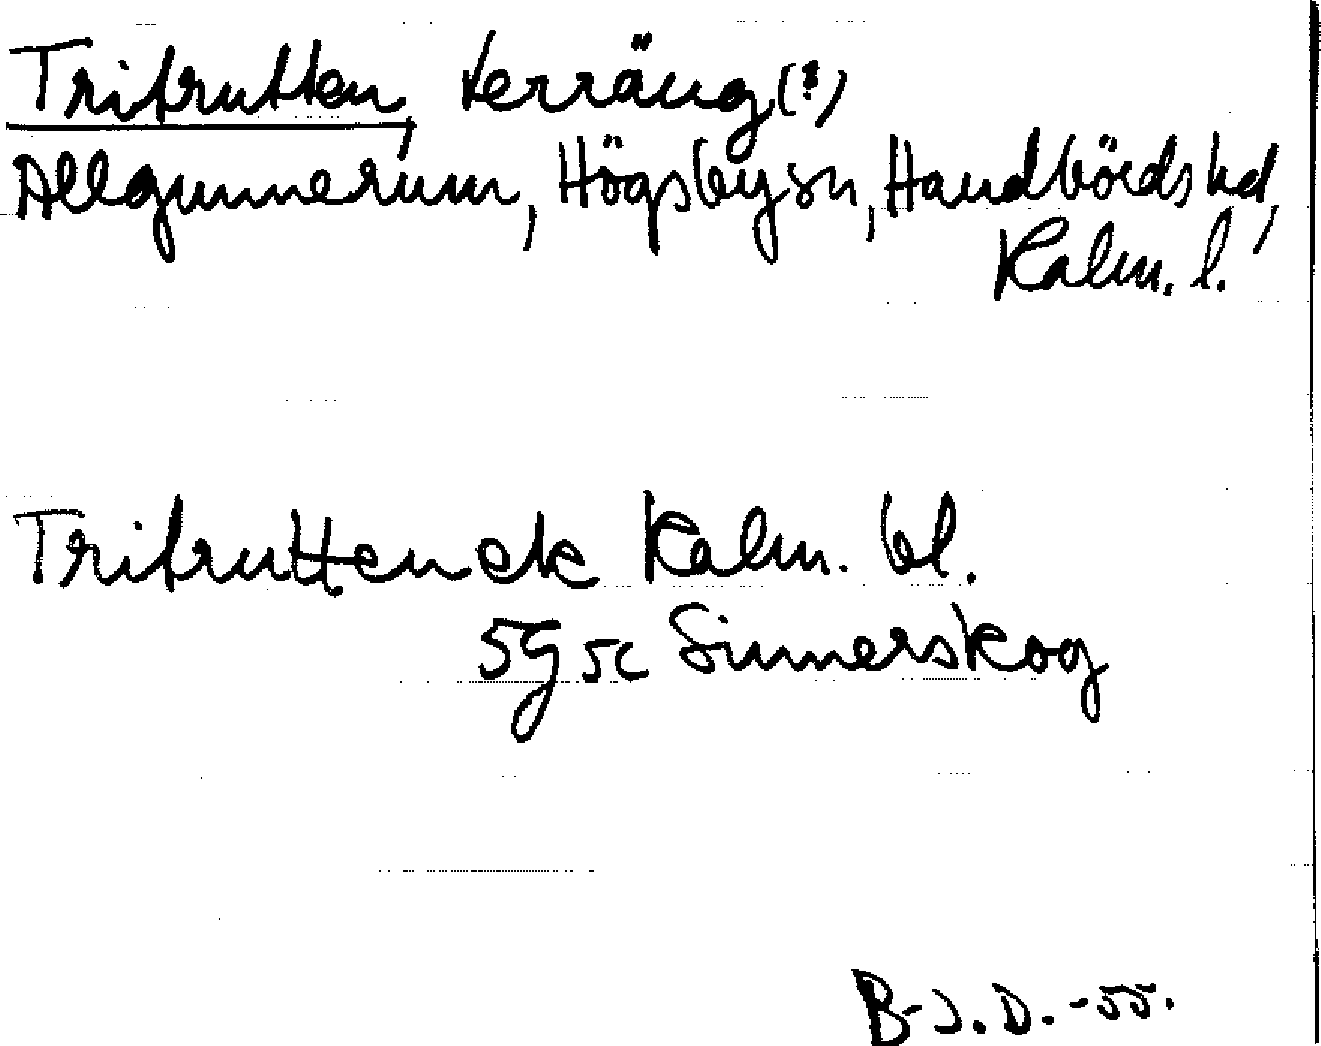 Trifrutten, terräng(?)
Allgunnerum, Högsby sn, Handbörds hd,
Kalm. l.
Trifruttenek Kalm. bl.
5g 5c Simmerskog
B-J.D. -55.